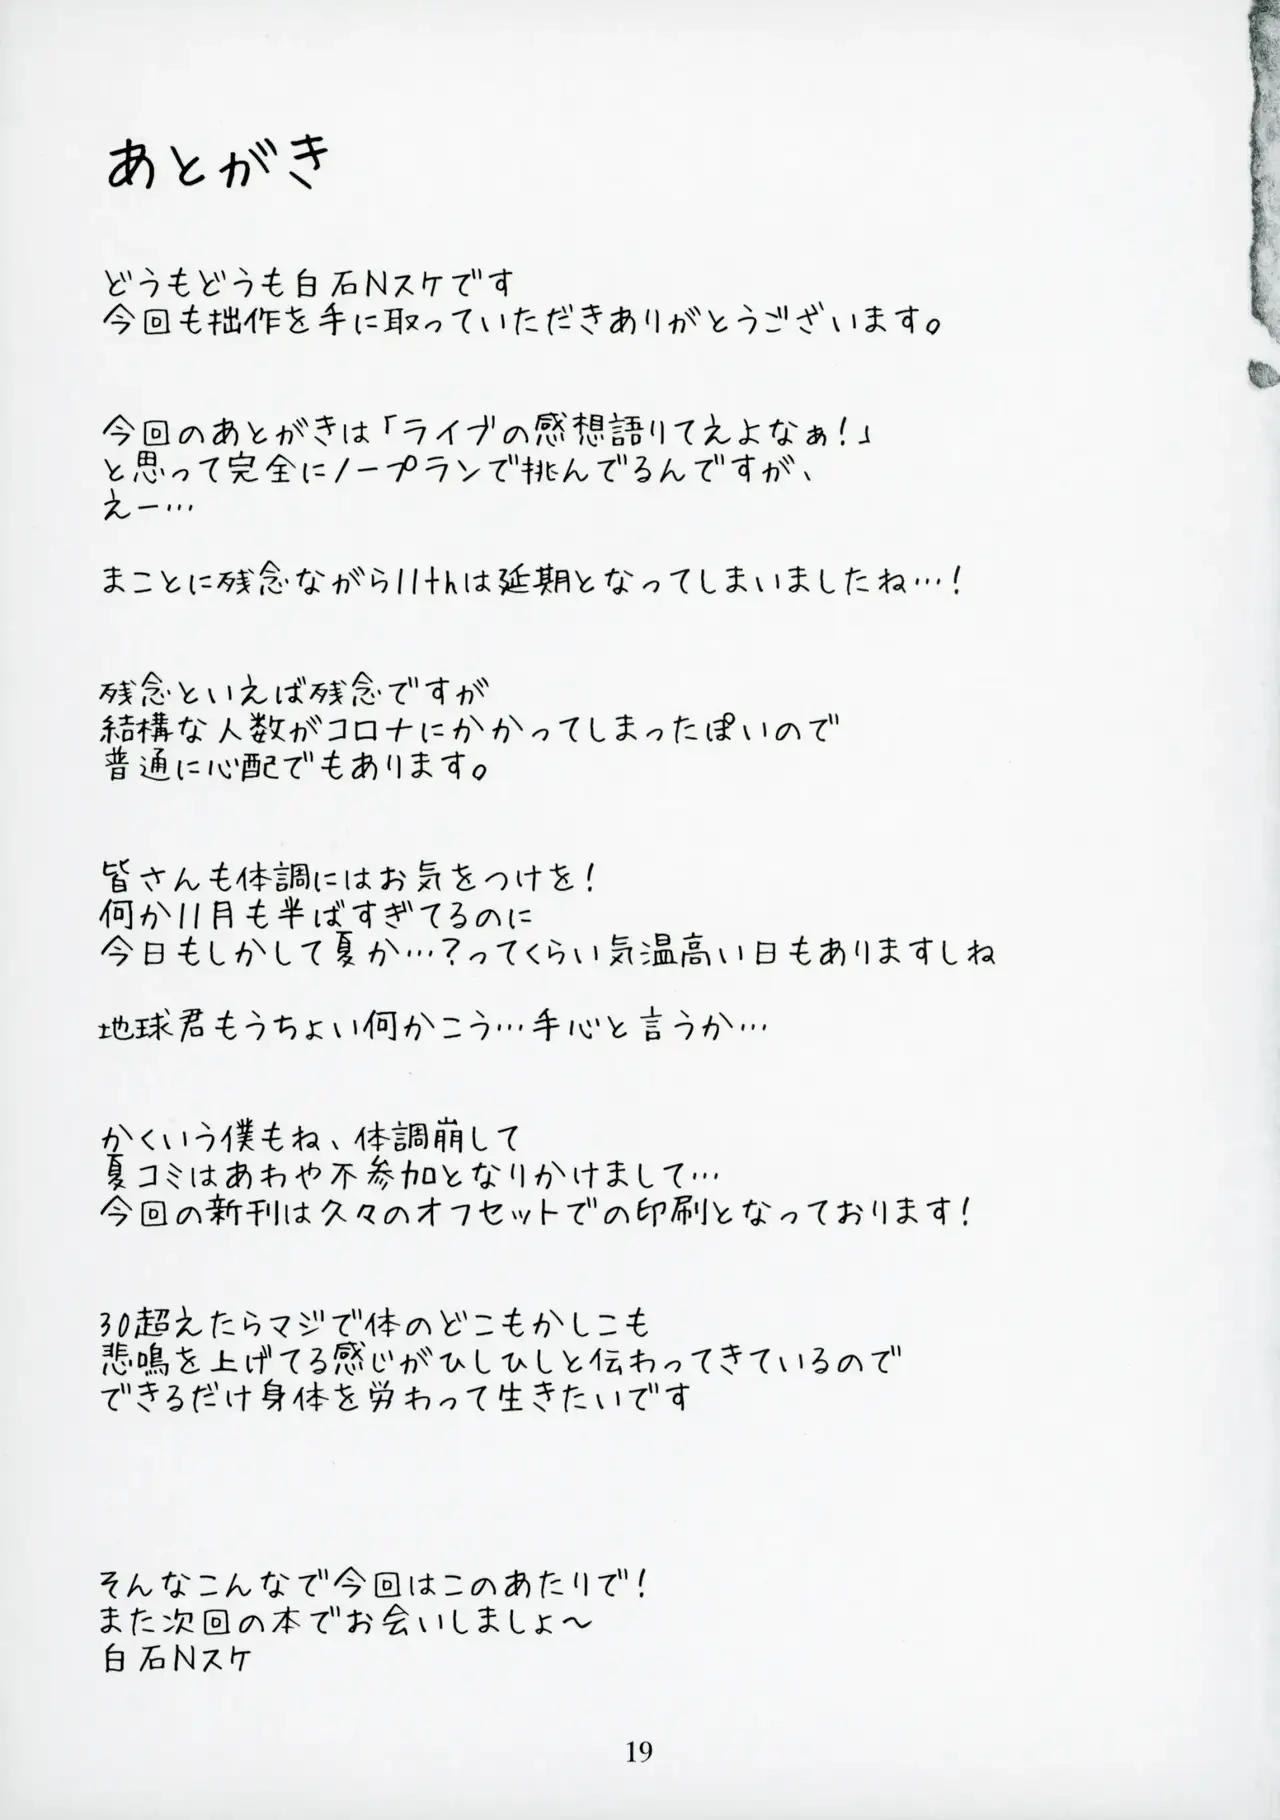 あとがき
どうもどうも白石Nスケです
今回も拙作を手に取っていただきありがとうございます。
今回のあとがきは「ライブの感想語りてえよなぁ!」
と思って完全にノープランで挑んでるんですが、
えー…
まことに残念ながら11thは延期となってしまいましたね…!
残念といえば残念ですが
結構な人数がコロナにかかってしまったぽいので
普通に心配でもあります。
皆さんも体調にはお気をつけを!
何か11月も半ばすぎてるのに
今日もしかして夏か…?ってくらい気温高い日もありますしね
地球君もうちょい何かこう…手心と言うか…
かくいう僕もね、体調崩して
夏コミはあわや不参加となりかけまして…
今回の新刊は久々のオフセットでの印刷となっております!
30超えたらマジで体のどこもかしこも
悲鳴を上げてる感じがひしひしと伝わってきているので
できるだけ身体を労わって生きたいです
そんなこんなで今回はこのあたりで!
また次回の本でお会いしましょ〜
白石Nスケ
19